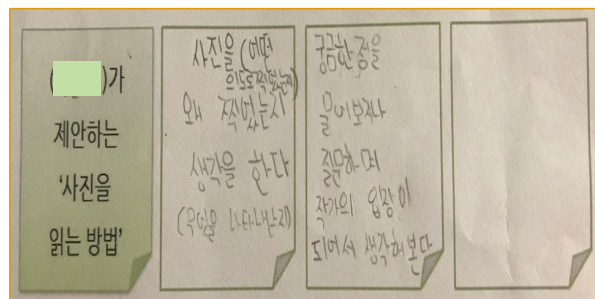 ( )가
제안하는
'사진을
읽는 방법'
사진을 (어떤
의도로 찍었는지)
왜 찍었는지
생각을 한다
(무엇을 나타내는지)
궁금한 점을
물어보거나
질문하며
작가의 입장이
되어서 생각해 본다